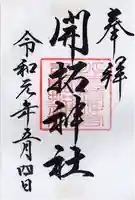 奉拝
開拓神社
令和元年五月四日